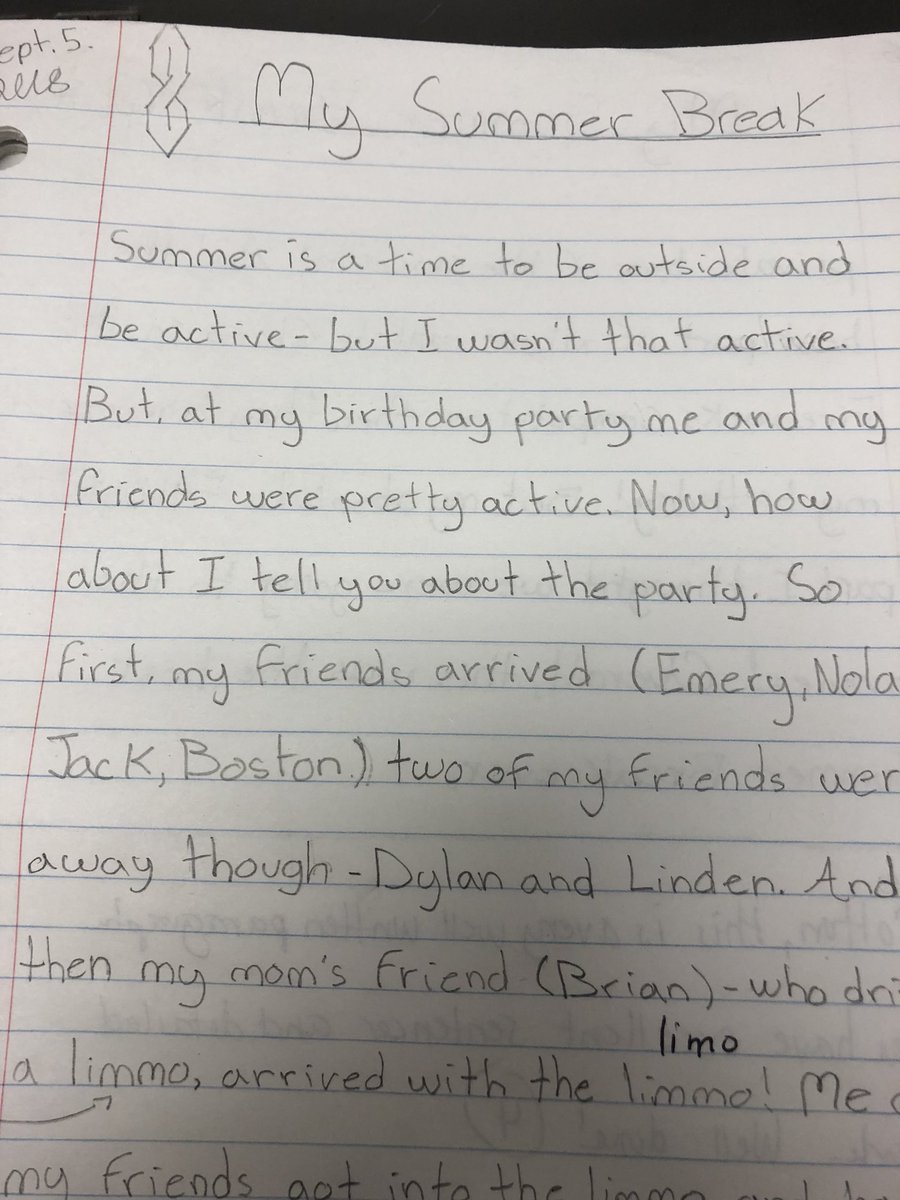 ept. 5.
My Summer Break
Summer is a time to be outside and
be active - but I wasn't that active.
But, at my birthday party me and my
friends were pretty active. Now, how
about I tell you about the party. So
first, my friends arrived (Emery, Nola
Jack, Boston.) two of my friends wer
away though - Dylan and Linden. And
then my mom's friend (Brian) - who dri
limo
a limmo, arrived with the limmo! Me
my friends got into the limmo and